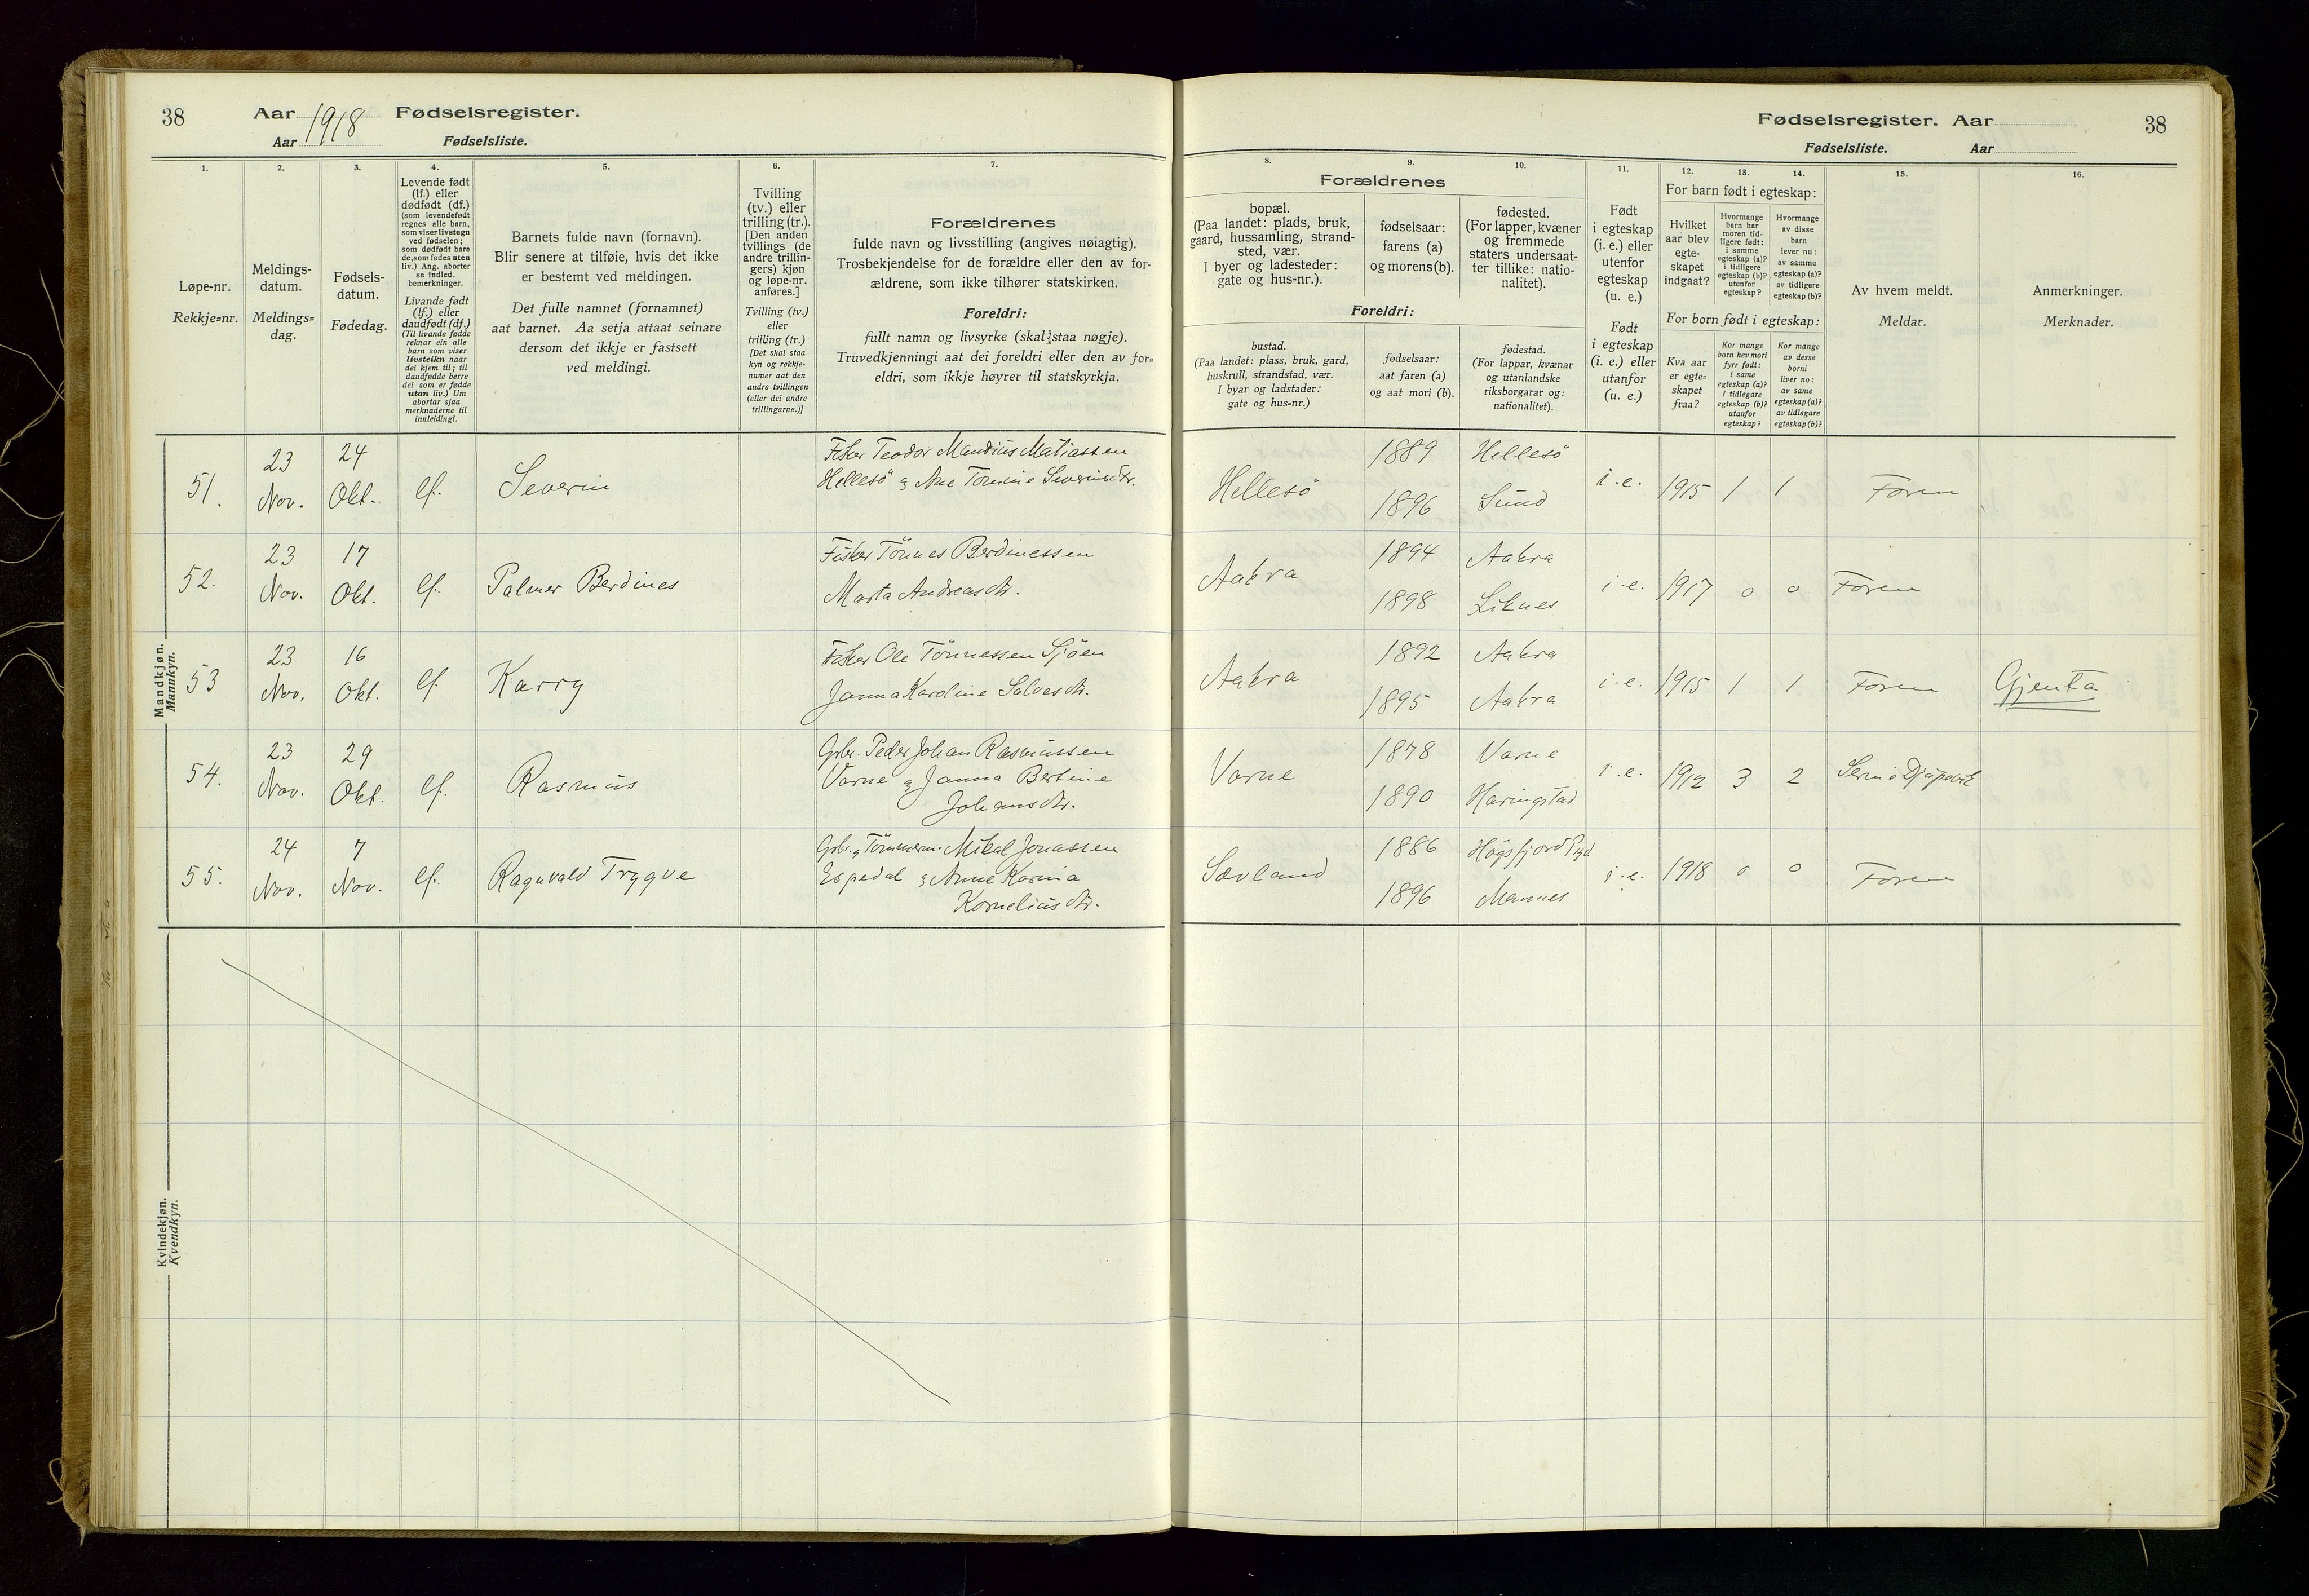 38
Aar 1918 Fødselsregister.
Aar Fødselsliste.
Fødselsregister. Aar
Fødselsliste. Aar
38
1.
Løpe-nr.
Rekkje=nr.
2.
Meldings-
datum.
Meldings=
dag.
3.
Fødsels-
datum.
Fødedag.
4.
Levende født
(lf.) eller
dødfødt (df.)
(som levendefødt
regnes alle barn,
som viser livstegn
ved fødselen;
som dødfødt bare
de, som fødes uten
liv.) Ang. aborter
se indled.
bemerkninger.
Livande født
(lf.) eller
daudfødt (df.)
(Til livande fødde
reknar ein alle
barn som viser
livsteikn naar
dei kjem til; til
daudfødde berre
dei som er fødde
utan liv.) Um
abortar sjaa
merknaderne til
innleidingi.
5.
Barnets fulde navn (fornavn).
Blir senere at tilføie, hvis det ikke
er bestemt ved meldingen.
Det fulle namnet (fornamnet)
aat barnet. Aa setja attaat seinare
dersom det ikkje er fastsett
ved meldingi.
6.
Tvilling
(tv.) eller
trilling (tr.).
[Den anden
tvillings (de
andre trillin-
gers) kjøn
og løpe-nr.
anføres.]
Tvilling (tv.)
eller
trilling (tr.)
[Det skal staa
kyn og rekkje-
numer aat den
andre tvillingen
(eller dei andre
trillingarne.)]
7.
Forældrenes
fulde navn og livsstilling (angives nøiagtig).
Trosbekjendelse for de forældre eller den av for-
ældrene, som ikke tilhører statskirken.
Foreldri:
fullt namn og livsyrke (skal staa nøgje).
Truvedkjenningi aat dei foreldri eller den av for=
eldri, som ikkje høyrer til statskyrkja.
Forældrenes
8.
bopæl.
(Paa landet: plads, bruk,
gaard, hussamling, strand-
sted, vær.
I byer og ladesteder:
gate og hus-nr.).
9.
fødselsaar:
farens (a)
og morens (b).
10.
fødested.
(For lapper, kvæner
og fremmede
staters undersaat-
ter tillike: natio-
nalitet).
Foreldri:
bustad.
(Paa landet: plass, bruk, gard,
huskrull, strandstad, vær.
I byar og ladstader:
gate og hus=nr.)
fødselsaar:
aat faren (a)
og aat mori (b).
fødestad.
(For lappar, kvænar
og utanlandske
riksborgarar og:
nationalitet).
11.
Født
i egteskap
(i. e.) eller
utenfor
egteskap
(u. e.)
Født
i egteskap
(i. e.) eller
utanfor
(u. e.)
12. 13. 14.
For barn født i egteskap:
Hvilket
aar blev
egte-
skapet
indgaat?
Hvormange
barn har
moren tid-
ligere født:
i samme
egteskap (a)?
i tidligere
egteskap (b)?
utenfor
egteskap?
Hvormange
av disse
barn
lever nu:
av samme
egteskap (a)?
av tidligere
egteskap (b)?
For born født i egteskap:
Kva aar
er egte=
skapet
fraa?
Kor mange
born hev mori
fyrr født:
i same
egteskap (a)?
i tidlegare
egteskap (b)?
utanfor
egteskap?
Kor mange
av desse
borni
liver no:
av same
egteskap (a)?
av tidlegare
egteskap (b)?
15.
Av hvem meldt.
Meldar.
16.
Anmerkninger.
Merknader.
Mandkjøn.
Mannkyn.
51. 23 Nov. 24 Okt. lf. Severin
Fisker Teodor Mandius Matiassen
Hellesö & Ane Tomine Severinsdtr.
Hellesö 1889 Hellesö
1896 Sund
i.e. 1915 1 1 Faren
52. 23 Nov. 17 Okt. lf. Palmer Berdines
Fisker Tönnes Berdinessen
Marta Andreasdtr.
Aakra 1894 Aakra
1898 Liknes
i.e. 1917 0 0 Faren
53 23 Nov. 16 Okt. lf. Karry
Fisker Ole Tönnessen Sjöen
Janna Karoline Salvesdtr.
Aakra 1892 Aakra
1895 Aakra
i.e. 1915 1 1 Faren Gjenta
54. 23 Nov. 29 Okt. lf. Rasmus
Gbr. Peder Johan Rasmussen
Varne & Janna Bertine
Johansdtr.
Varne 1878 Varne
1890 Haringstad
i.e. 1912 3 2 Serine
55. 24 Nov. 7 Nov. lf. Ragnvald Trygve
Gbr. & Tömmerm. Mikal Jonassen
Espedal & Anne Karina
Korneliusdtr.
Sævland 1886 Högsfjord
1896 Mannes
i.e. 1918 0 0 Faren
Kvindekjøn.
Kvendkyn.